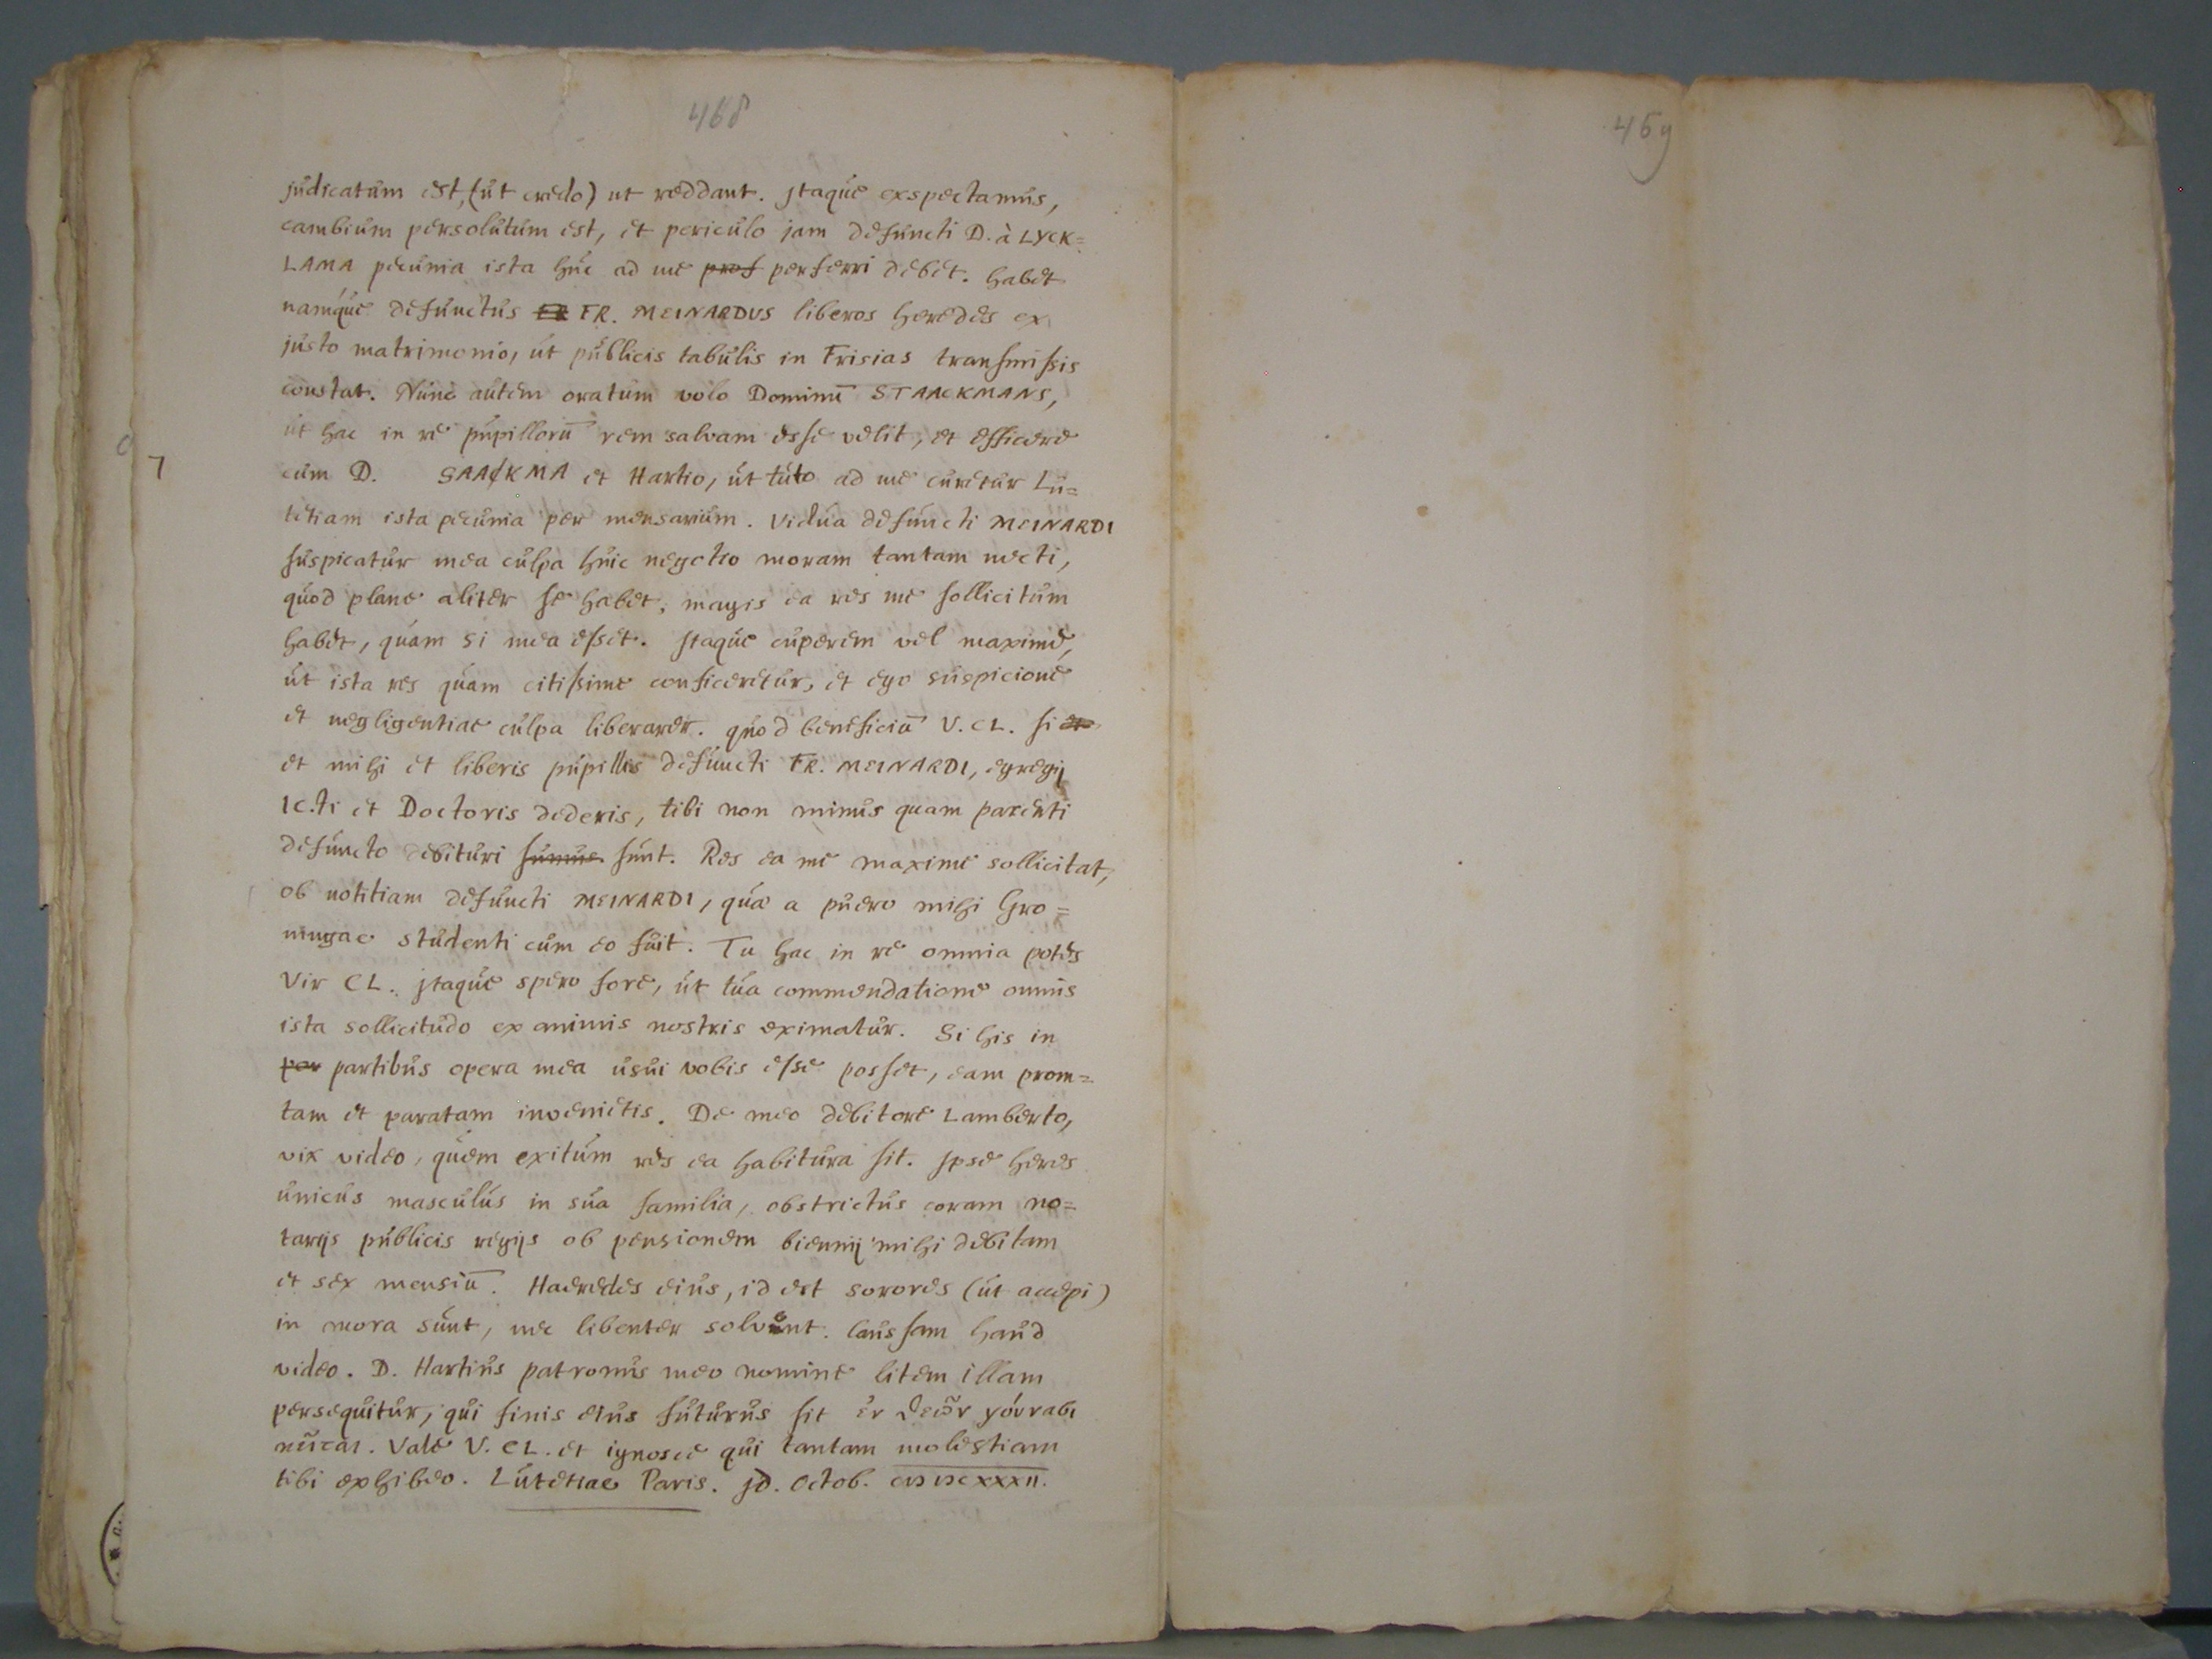 468
469
judicatum est, (ut credo) ut reddant. Itaque exspectamus,
cambium persolutum est, et periculo jam defuncti D. à LYCK=
LAMA pecunia ista huc ad me prof perferri debet. habet
namque defunctus FR FR. MEINARDUS liberos heredes ex
justo matrimonio, ut publicis tabulis in Frisias transmissis
constat. Nunc autem oratum volo Dominū STAACKMANS,
ut hac in re pupillorū rem salvam esse velit, et efficere
cum D. SAACKMA et Hartio, ut tuto ad me curetur Lu=
tetiam ista pecunia per mensarium. Vidua defuncti MEINARDI
suspicatur mea culpa huic negotio moram tantam necti,
quod plane aliter se habet, magis ea res me sollicitum
habet, quam si mea esset. Itaque cuperem vel maxime,
ut ista res quam citissime conficeretur, et ego suspicione
et negligentiae culpa liberarer. quod beneficiū V. CL. si et
et mihi et liberis pupillis defuncti FR. MEINARDI, egregij
IC.ti et Doctoris dederis, tibi non minus quam parenti
defuncto debituri sumus sunt. Res ea me maxime sollicitat,
ob notitiam defuncti MEINARDI, quæ a puero mihi Gro=
ningae studenti cum eo fuit. Tu hac in re omnia potes
Vir CL. Itaque spero fore, ut tua commendatione omnis
ista sollicitudo ex animis nostris eximatur. Si his in
par partibus opera mea usui vobis esse posset, eam prom=
tam et paratam invenietis. De meo debitore Lamberto,
vix video, quem exitum res ea habitura sit. Ipse heres
unicus masculus in sua familia, obstrictus coram no=
tarijs publicis regijs ob pensionem biennij mihi debitam
et sex mensiū. Haeredes eius, id est sorores (ut accepi)
in mora sunt, nec libenter solvent. Caussam haud
video. D. Hartius patronus meo nomine litem illam
persequitur, qui finis eius futurus sit ἐν θεῶν γούνασι
κεῖται. Vale V. CL. et ignosce qui tantam molestiam
tibi exhibeo. Lutetiae Paris. Id. Octob. CIƆ IƆC XXXII.